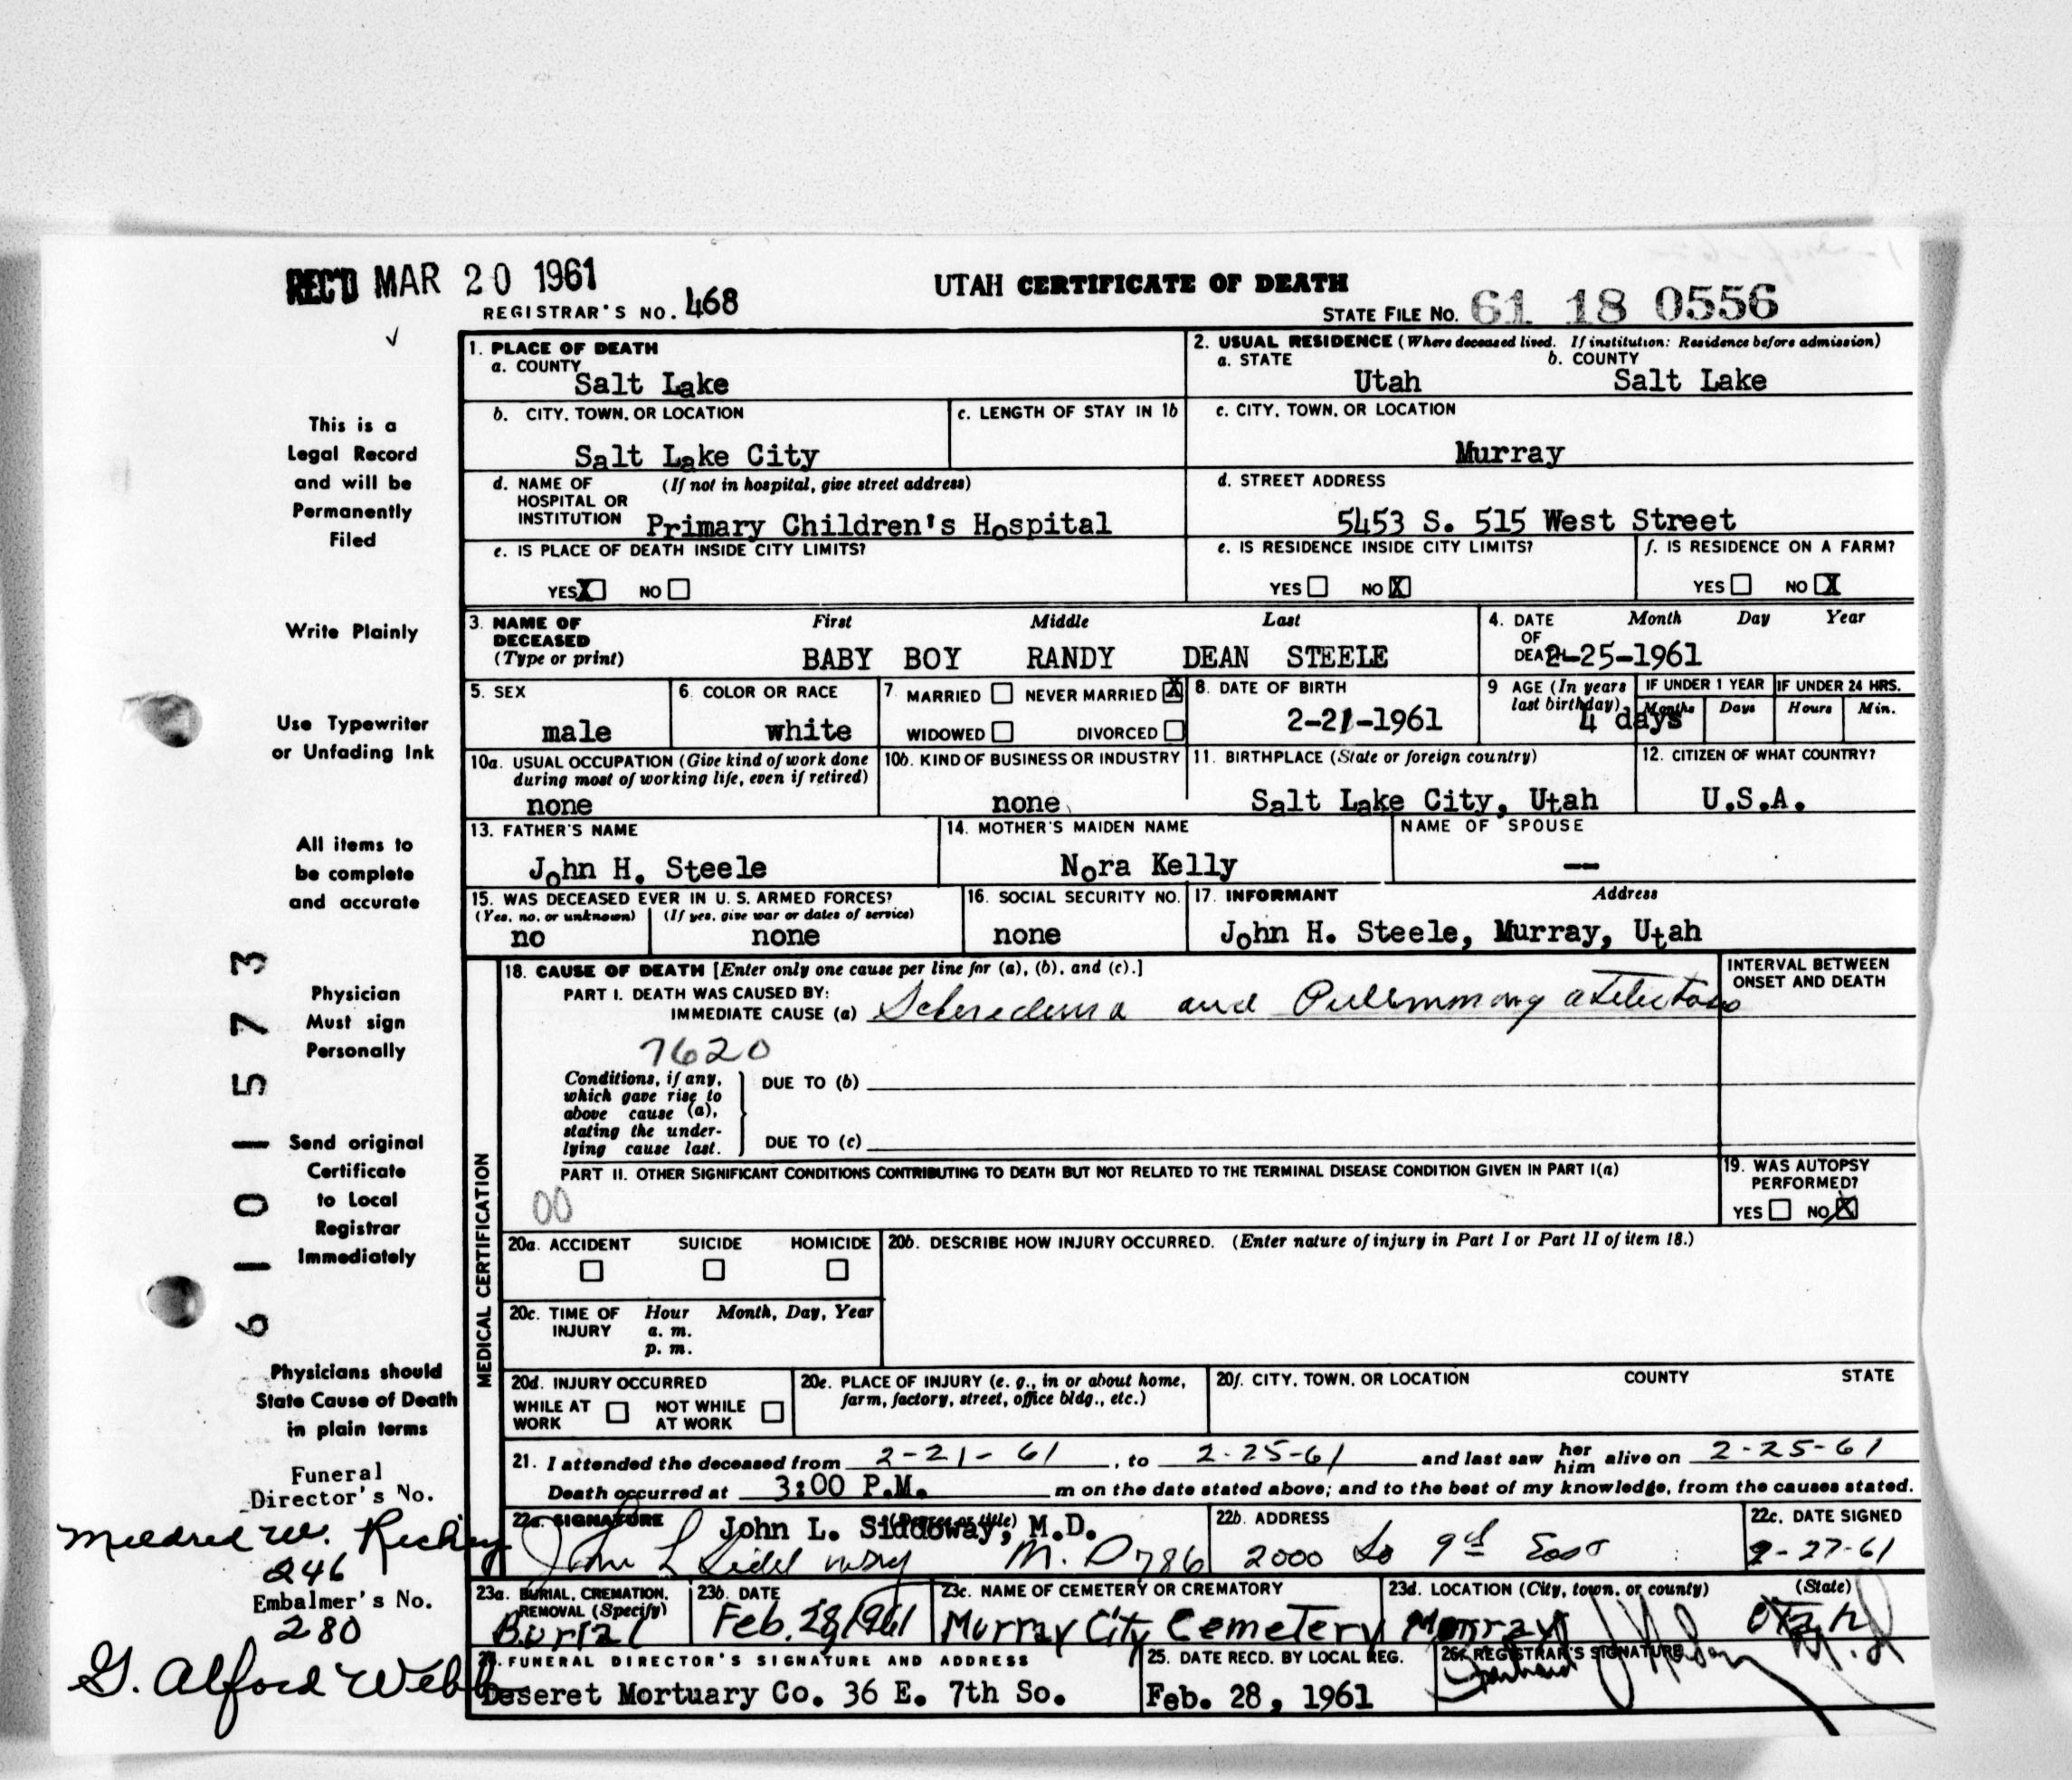 REC'D MAR 20 1961
UTAH CERTIFICATE OF DEATH
REGISTRAR'S NO. 468
STATE FILE NO. 61 18 0556
1. PLACE OF DEATH
a. COUNTY
Salt Lake
2. USUAL RESIDENCE (Where deceased lived. If institution: Residence before admission)
a. STATE
Utah
b. COUNTY
Salt Lake
b. CITY, TOWN, OR LOCATION
Salt Lake City
c. LENGTH OF STAY IN 1b
c. CITY, TOWN, OR LOCATION
Murray
d. NAME OF HOSPITAL OR INSTITUTION
(If not in hospital, give street address)
Primary Children's Hospital
d. STREET ADDRESS
5453 S. 515 West Street
e. IS PLACE OF DEATH INSIDE CITY LIMITS?
YES X NO
e. IS RESIDENCE INSIDE CITY LIMITS?
YES NO X
f. IS RESIDENCE ON A FARM?
YES NO X
3. NAME OF DECEASED (Type or print)
First Middle Last
BABY BOY RANDY DEAN STEELE
4. DATE OF DEATH
Month Day Year
2-25-1961
5. SEX
male
6. COLOR OR RACE
white
7. MARRIED NEVER MARRIED X
WIDOWED DIVORCED
8. DATE OF BIRTH
2-21-1961
9 AGE (In years last birthday)
4 days
IF UNDER 1 YEAR
Months Days
IF UNDER 24 HRS.
Hours Min.
10a. USUAL OCCUPATION (Give kind of work done during most of working life, even if retired)
none
10b. KIND OF BUSINESS OR INDUSTRY
none
11. BIRTHPLACE (State or foreign country)
Salt Lake City, Utah
12. CITIZEN OF WHAT COUNTRY?
U.S.A.
13. FATHER'S NAME
John H. Steele
14. MOTHER'S MAIDEN NAME
Nora Kelly
NAME OF SPOUSE
—
15. WAS DECEASED EVER IN U. S. ARMED FORCES?
(Yes, no, or unknown) (If yes, give war or dates of service)
no none
16. SOCIAL SECURITY NO.
none
17. INFORMANT Address
John H. Steele, Murray, Utah
MEDICAL CERTIFICATION
18. CAUSE OF DEATH [Enter only one cause per line for (a), (b), and (c).]
PART I. DEATH WAS CAUSED BY:
IMMEDIATE CAUSE (a) Scleredema and Pulmonary atelectasis
INTERVAL BETWEEN ONSET AND DEATH
7620
Conditions, if any, which gave rise to above cause (a), stating the underlying cause last.
DUE TO (b)
DUE TO (c)
PART II. OTHER SIGNIFICANT CONDITIONS CONTRIBUTING TO DEATH BUT NOT RELATED TO THE TERMINAL DISEASE CONDITION GIVEN IN PART I(a)
00
19. WAS AUTOPSY PERFORMED?
YES NO X
20a. ACCIDENT SUICIDE HOMICIDE
20b. DESCRIBE HOW INJURY OCCURRED. (Enter nature of injury in Part I or Part II of item 18.)
20c. TIME OF INJURY
Hour Month, Day, Year
a. m.
p. m.
20d. INJURY OCCURRED
WHILE AT WORK NOT WHILE AT WORK
20e. PLACE OF INJURY (e. g., in or about home, farm, factory, street, office bldg., etc.)
20f. CITY, TOWN, OR LOCATION COUNTY STATE
21. I attended the deceased from 2-21-61, to 2-25-61 and last saw her him alive on 2-25-61
Death occurred at 3:00 P.M. m on the date stated above; and to the best of my knowledge, from the causes stated.
22a. SIGNATURE (Degree or title)
John L. Siddoway, M.D.
John L Siddoway M.D 786
22b. ADDRESS
2000 So 9th East
22c. DATE SIGNED
2-27-61
23a. BURIAL, CREMATION, REMOVAL (Specify)
Burial
23b. DATE
Feb. 28, 1961
23c. NAME OF CEMETERY OR CREMATORY
Murray City Cemetery
23d. LOCATION (City, town, or county) (State)
Murray Utah
24. FUNERAL DIRECTOR'S SIGNATURE AND ADDRESS
Deseret Mortuary Co. 36 E. 7th So.
25. DATE RECD. BY LOCAL REG.
Feb. 28, 1961
26. REGISTRAR'S SIGNATURE
This is a
Legal Record
and will be
Permanently
Filed
Write Plainly
Use Typewriter
or Unfading Ink
All items to
be complete
and accurate
Physician
Must sign
Personally
Send original
Certificate
to Local
Registrar
Immediately
Physicians should
State Cause of Death
in plain terms
Funeral
Director's No.
Mildred W. Richey
246
Embalmer's No.
280
G. Alford Webb
6101573